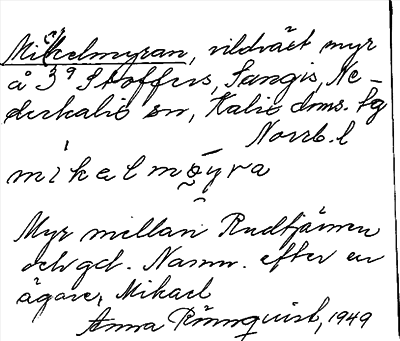 Mikelmyran, vildväxt myr
å 3⁹ Stoffers, Sangis, Ne-
derkalix sn, Kalix dms. tg
Norrb. l
mikelmöyra
Myr mellan Rudtjärnen
och gd. Namn. efter en
ägare, Mikael
Anna Rönnquist, 1949